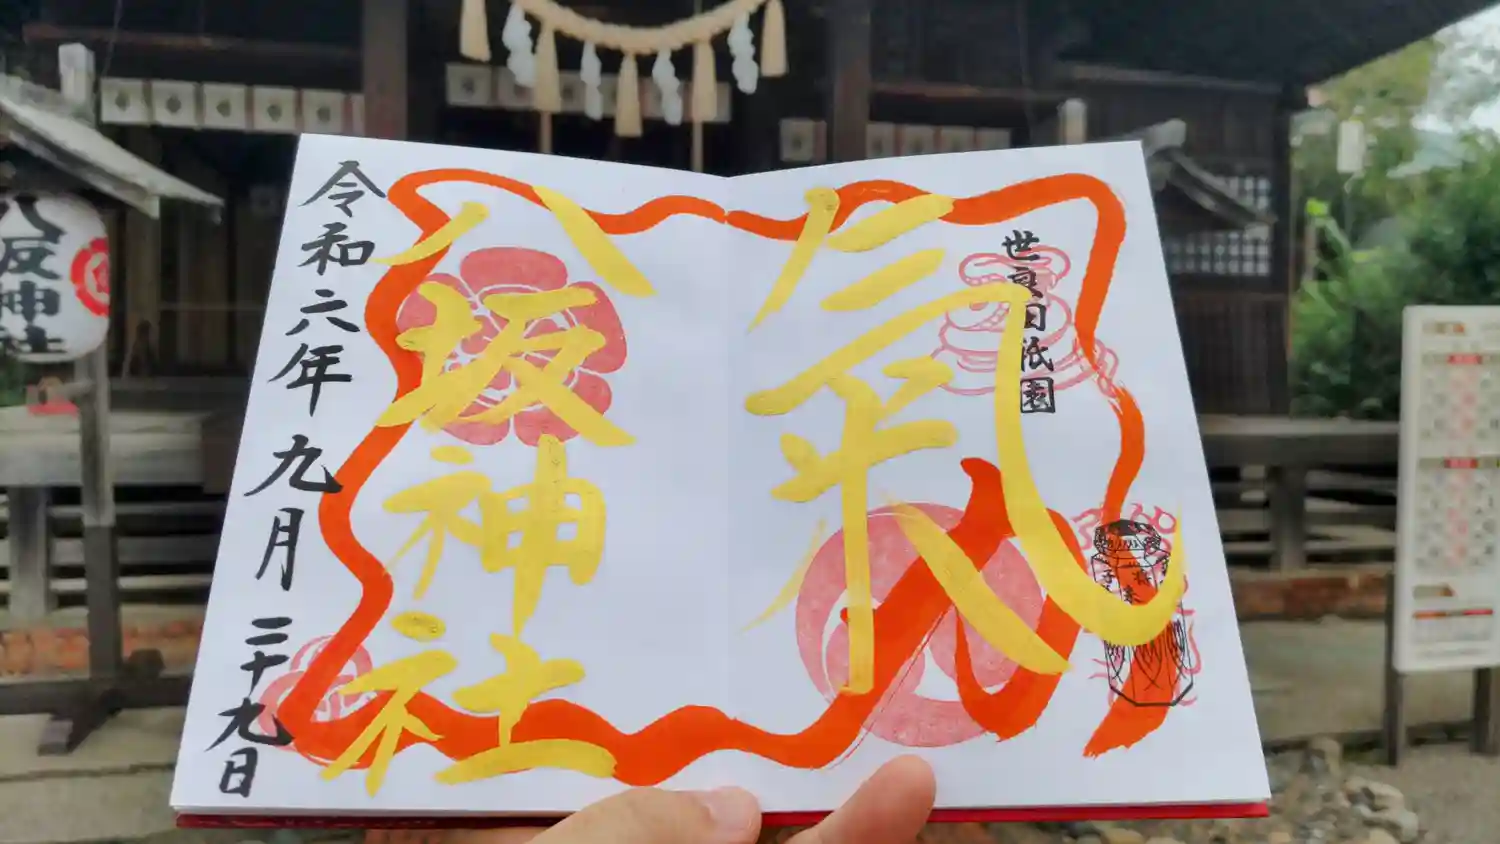 氣
世良田祇園
八坂神社
令和六年九月二十九日
八坂神社